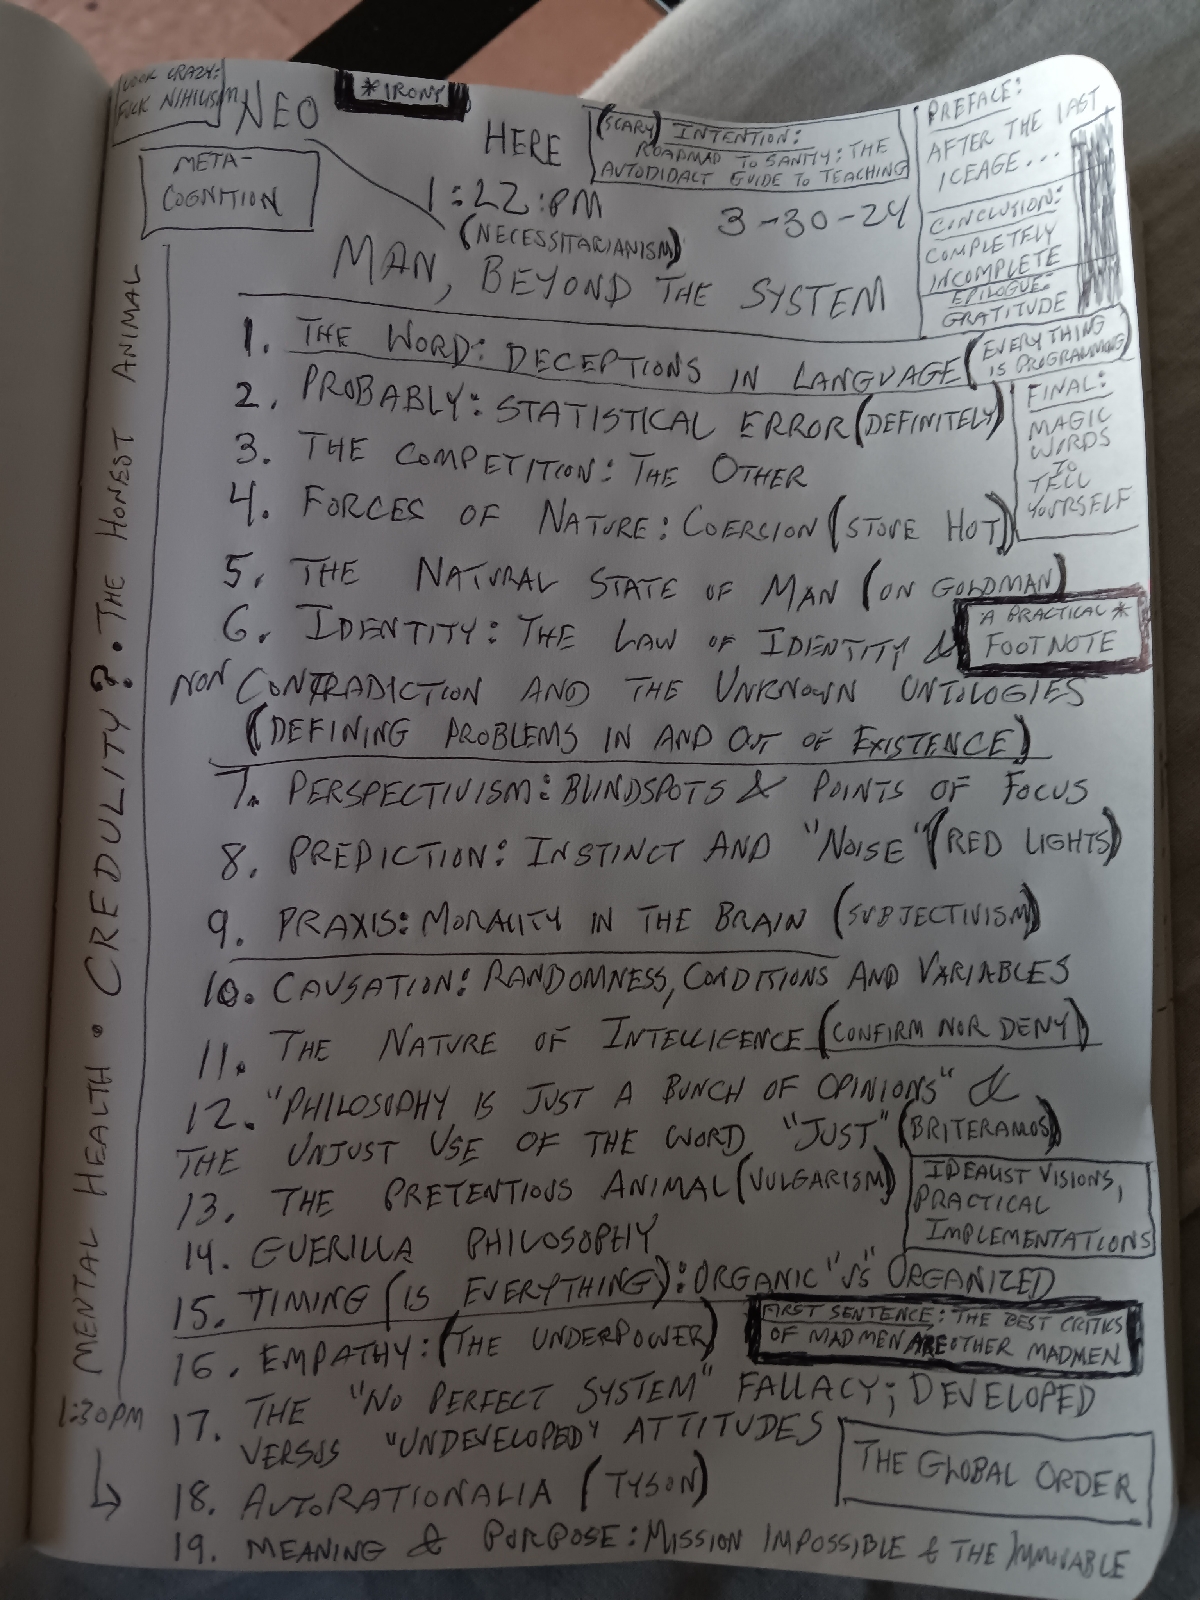 LOOK CRAZY:
FUCK NIHILISM
NEO
*IRONY
META-
COGNITION
HERE
1:22:PM
(NECESSITARIANISM)
(SCARY) INTENTION:
ROADMAP TO SANITY: THE
AUTODIDALT GUIDE TO TEACHING
3-30-24
PREFACE:
AFTER THE LAST
ICEAGE...
CONCLUSION:
COMPLETELY
INCOMPLETE
EPILOGUE:
GRATITUDE
MAN, BEYOND THE SYSTEM
1. THE WORD: DECEPTIONS IN LANGUAGE (EVERYTHING
IS PROGRAMMING)
2. PROBABLY: STATISTICAL ERROR (DEFINITELY)
FINAL:
MAGIC
WORDS
TO
TELL
YOURSELF
3. THE COMPETITION: THE OTHER
4. FORCES OF NATURE: COERCION (STOVE HOT)
5. THE NATURAL STATE OF MAN (ON GOLDMAN)
6. IDENTITY: THE LAW OF IDENTITY &
A PRACTICAL *
FOOTNOTE
NON CONTRADICTION AND THE UNKNOWN ONTOLOGIES
(DEFINING PROBLEMS IN AND OUT OF EXISTENCE)
7. PERSPECTIVISM: BLINDSPOTS & POINTS OF FOCUS
8. PREDICTION: INSTINCT AND "NOISE" (RED LIGHTS)
9. PRAXIS: MORALITY IN THE BRAIN (SUBJECTIVISM)
10. CAUSATION: RANDOMNESS, CONDITIONS AND VARIABLES
11. THE NATURE OF INTELLIGENCE (CONFIRM NOR DENY)
12. "PHILOSOPHY IS JUST A BUNCH OF OPINIONS" &
THE UNJUST USE OF THE WORD "JUST" (BRITERAMOS)
13. THE PRETENTIOUS ANIMAL (VULGARISM)
IDEALIST VISIONS,
PRACTICAL
IMPLEMENTATIONS
14. GUERILLA PHILOSOPHY
15. TIMING (IS EVERYTHING): ORGANIC "VS" ORGANIZED
16. EMPATHY: (THE UNDERPOWER)
FIRST SENTENCE: THE BEST CRITICS
OF MADMEN ARE OTHER MADMEN
17. THE "NO PERFECT SYSTEM" FALLACY; DEVELOPED
VERSUS "UNDEVELOPED" ATTITUDES
THE GLOBAL ORDER
18. AUTORATIONALIA (TYSON)
19. MEANING & PURPOSE: MISSION IMPOSSIBLE & THE IMMOVABLE
MENTAL HEALTH • CREDULITY? • THE HONEST ANIMAL
1:30PM